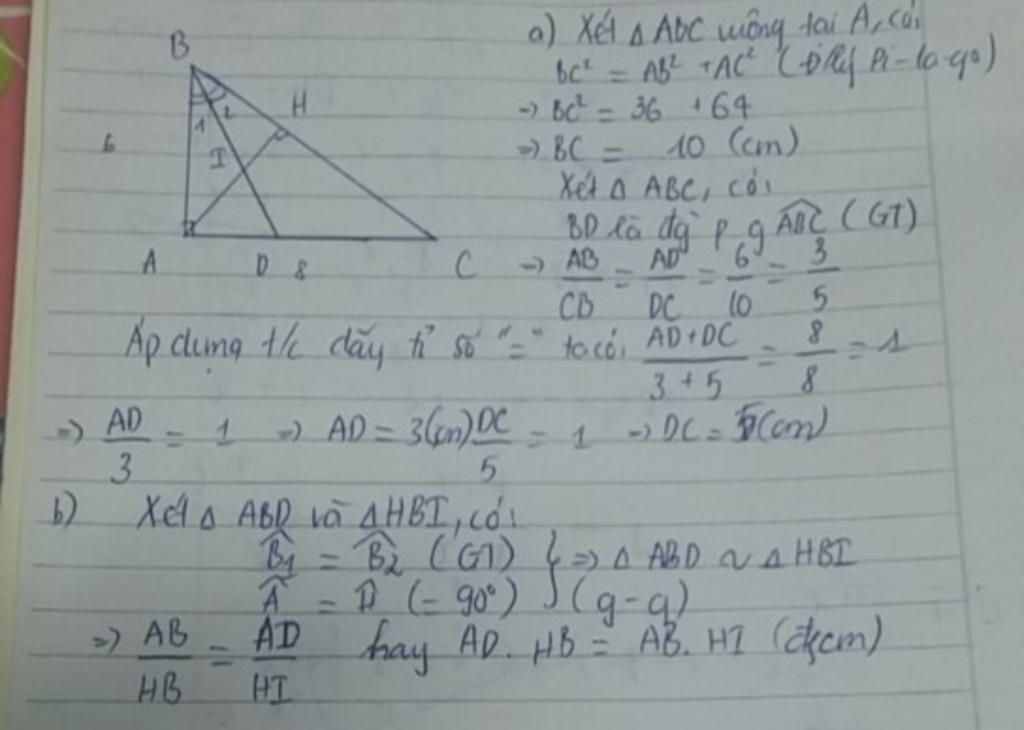 B
H
1 2
6
I
A D 8 C
a) Xét △ ABC vuông tại A, có:
BC² = AB² + AC² (Đlý Pi-ta-go)
→ BC² = 36 + 64
→ BC = 10 (cm)
Xét △ ABC, có:
BD là đg p.g ABC (GT)
→ AB/CB = AD/DC = 6/10 = 3/5
Áp dụng t/c dãy tỉ số "=" ta có: (AD+DC)/(3+5) = 8/8 = 1
⇒ AD/3 = 1 ⇒ AD = 3(cm) DC/5 = 1 → DC = 5(cm)
b) Xét △ ABD và △HBI, có:
B̂1 = B̂2 (GT) } ⇒ △ ABD ~ △ HBI
Â = Ĥ (= 90°) } (g-g)
⇒ AB/HB = AD/HI hay AD. HB = AB. HI (đpcm)